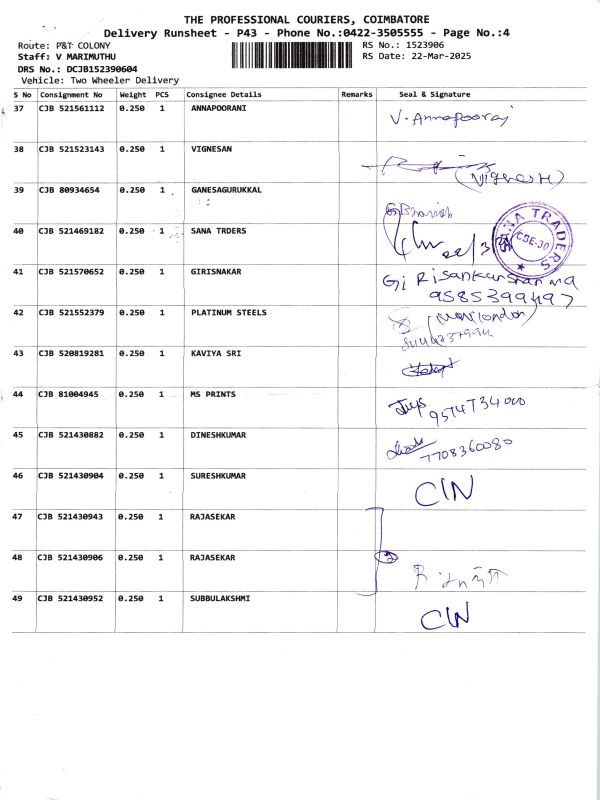 THE PROFESSIONAL COURIERS, COIMBATORE
Delivery Runsheet - P43 - Phone No.:0422-3505555 - Page No.:4
Route: P&T COLONY RS No.: 1523906
Staff: V MARIMUTHU RS Date: 22-Mar-2025
DRS No.: DCJB152390604
Vehicle: Two Wheeler Delivery
S No Consignment No Weight PCS Consignee Details Remarks Seal & Signature
37 CJB 521561112 0.250 1 ANNAPOORANI V. Annapoorani
38 CJB 521523143 0.250 1 VIGNESAN (Vignesh)
39 CJB 80934654 0.250 1 GANESAGURUKKAL
40 CJB 521469182 0.250 1 SANA TRDERS SANA TRADERS CBE-30
41 CJB 521570652 0.250 1 GIRISNAKAR
9585399497
42 CJB 521552379 0.250 1 PLATINUM STEELS
43 CJB 520819281 0.250 1 KAVIYA SRI
44 CJB 81004945 0.250 1 MS PRINTS
45 CJB 521430882 0.250 1 DINESHKUMAR 7708360080
46 CJB 521430904 0.250 1 SURESHKUMAR CIN
47 CJB 521430943 0.250 1 RAJASEKAR
48 CJB 521430906 0.250 1 RAJASEKAR 2
49 CJB 521430952 0.250 1 SUBBULAKSHMI CIN